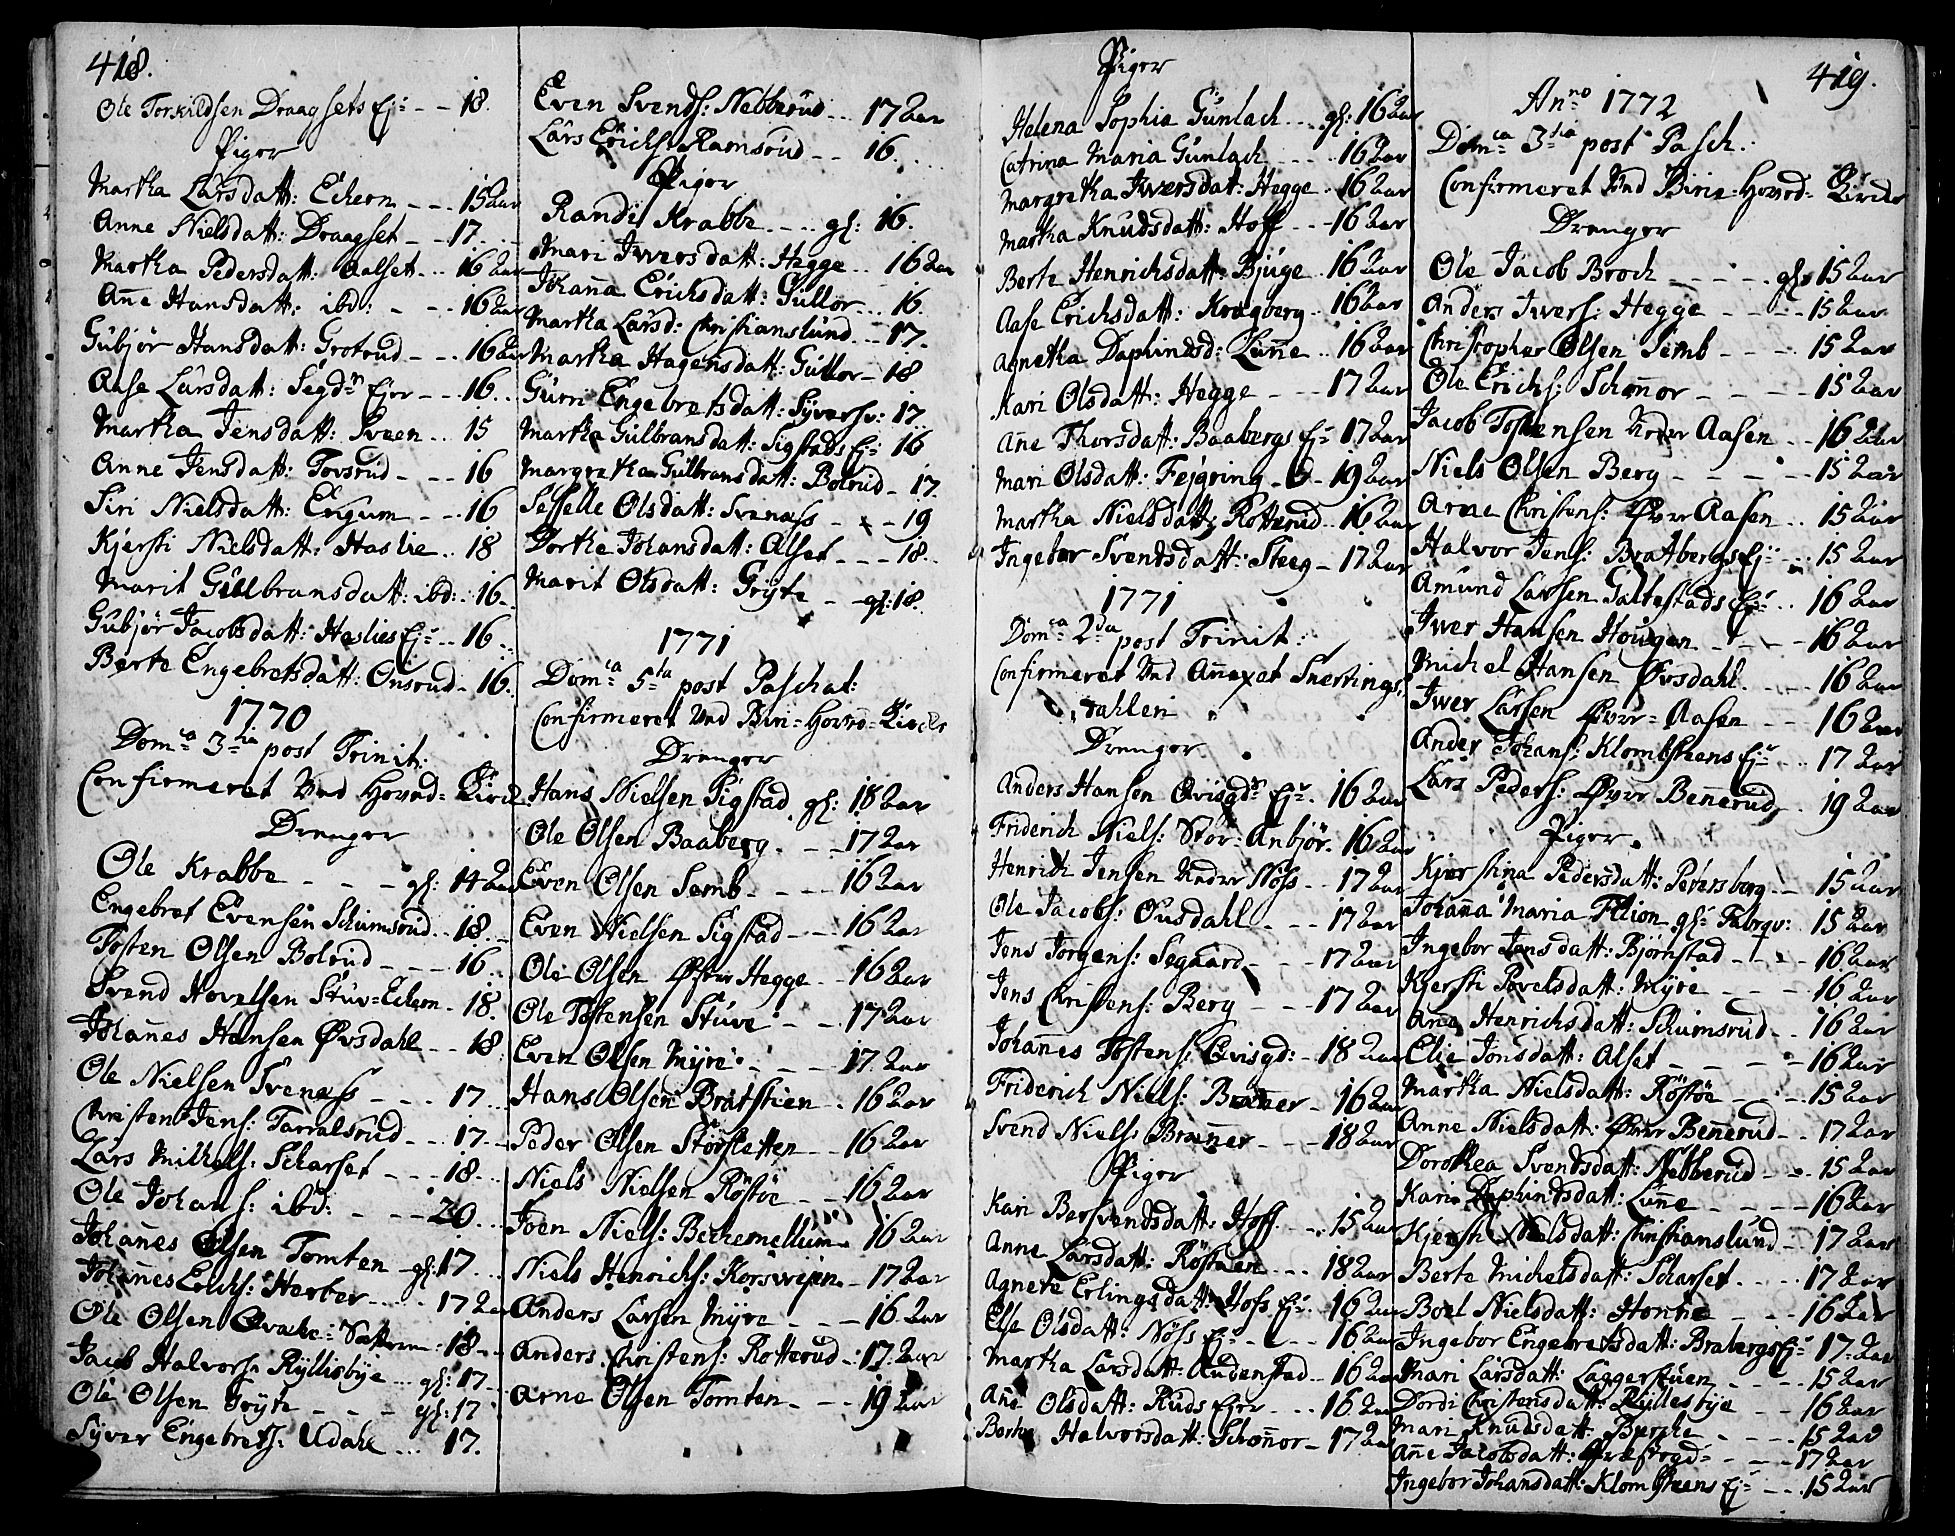 418.
Ole Torkildsen Draagsets Ej: - - 18.
Piger
Martha Larsdatt: Echern - - - 15 aar
Anne Nielsdatt: Draagset - - 17.
Martha Pedersdatt: Aalset - - 16 aar
Añe Hansdatt: ibd: - - - 16 aar
Gubjør Hansdatt: Grotrud - - - 16 aar
Aase Larsdatt: Segdn Ejer - - - 16.
Martha Jensdatt: Sveen - - 15
Anne Jensdatt: Tovsrud - - - 16
Siri Nielsdatt: Engum - - - 16
Kjersti Nielsdatt: Haslie - - 18
Marit Gulbransdatt: ibd: - 16.
Gubjør Jacobsdatt: Haslies Ej: - - 16
Berte Engebretsdatt: Onsrud - 16.
1770
Domca 3tia post Trinit:
Confirmeret Ved Hoved-Kirch.
Drenger
Ole Krabbe - - - - gl: 14 aar
Engebret Evensen Schumsrud - - 18.
Tosten Olsen Bolrud - - - - 16
Svend Hovelsen Stuv-Echern - 18.
Johañes Hansen Øvsdahl - - - 18.
Ole Nielsen Svenæss - - - 17
Christen Jens: Tarralsrud - - - 17
Lars Michels: Scharset - - - 18
Ole Johans: ibd: - - - 20
Johañes Olsen Tomten - gl: 17
Johañes Erichs: Herber - - - 17 aar
Ole Olsen - Sætteren: 18
Jacob Halvors: Ryllisbye - - gl: 17
Ole Olsen Gryte - - - gl: 17
Syver Engebrets: Udahl - - - 17.
Even Svends: Nebberud - - - 17 aar
Lars Erichs: Ramsrud - - - 16.
Piger
Randi Krabbe - - - - gl: 16.
Mari Iversdatt: Hegge - - 16 aar
Johaña Erichsdatt: Gullor - - - 16.
Martha Larsd: Christianslund - - 17.
Martha Hagensdatt: Gullor - 18
Gurri Engebretsdatt: Syvers: 17
Martha Gulbransdatt: Sigstads Ej: 16
Margretha Gulbransdatt: Bolrud - 17.
Sesselle Olsdatt: Svenæss - - - 19
Dorthe Johansdatt: Alset - - - 18.
Marit Olsdatt: Gryte - - gl: 18.
1771
Domca 5ta post Paschat:
Confirmeret Ved Biri-Hoved-Kirch
Drenger
Hans Nielsen Sigstad gl: 18 aar
Ole Olsen Baaberg. - - - 17 aar
Even Olsen Semb - - - - 16 aar
Even Nielsen Sigstad - - - 16 aar
Ole Olsen Østre Hegge - - 16 aar
Ole Tostensen Stuve - - - 17 aar
Even Olsen Myre - - - - 17. aar
Hans Olsen Bratstien - . 16 aar
Peder Olsen Storsletten - - 16 aar
Niels Nielsen Røstøe - - - 16 aar
Joen Niels: Bechemellum - 16 aar
Niels Henrichs: Korsvejen - 17 aar
Anders Larsen Myre - - - 16 aar
Anders Christens: Rotterud - - 17. aar
Arne Olsen Tomten - - - 19 aar
Piger
Helena Sophia Gunlach - - - gl: 16 aar
Catrina Maria Gunlach - - - - 16 aar
Margretha Iversdat: Hegge - - 16 aar
Martha Knudsdatt: Hoff - - - 16 aar
Berte Henrichsdatt: Bjuge - 16 aar
Aase Erichsdatt: Kragberg - 16 aar
Agnetha Daphindsd: Luñe - - 16 aar
Kari Olsdatt: Hegge - - - 17 aar
Añe Thorsdatt: Baabergs Ej: 17 aar
Mari Olsdatt: Fejgring - - 19 aar
Martha Nielsdatt: Rotterud - 16 aar
Ingebor Svendsdatt: Steeg - 17 aar
1771
Domca 2da post Trinit:
Confirmeret Ved Añexet Snertings-
dahlen
Drenger
Anders Hansen Qvisgdn Ejr. 16 aar
Friderich Niels: Stor-Anbjør - 16 aar
Henrich Jensen Neder Nøss - - 17 aar
Ole Jacobs: Ousdahl - - - 17 aar
Jens Jørgens: Segaard - - - 17 aar
Jens Christens: Berg - - - 17 aar
Johañes Tostens: Qvisgd: - 18 aar
Friderich Niels: Bræñer - 16 aar
Svend Niels: Bræñer - - - 18 aar
Piger
Kari Bersvendsdatt: Hoff - - - 15 aar
Anne Larsdatt: Røstøen - - - 18 aar
Agnete Erlingsdatt: Hoffs Ej: - 16 aar
Else Olsdatt: Nøss Ej: - - - 16 aar
Martha Larsdatt: Audenstad - - 16 aar
Añe Olsdatt: Ruds Ejer - - - 16 aar
Berthe Halvorsdatt: Schoñor - 17 aar
419.
Anno 1772
Domca 3tia post Pasch:
Confirmeret Ved Birie-Hoved-Kirche
Drenger
Ole Jacob Broch - - - - gl: 15 aar
Anders Ivers: Hegge - - - - 15 aar
Christopher Olsen Semb - - - 15 aar
Ole Erichs: Schoñor - - - - 15 aar
Jacob Tostensen Neder Aasen - - 16 aar
Niels Olsen Berg - - - - 15 aar
Arne Christens: Øvre Aasen - - 15 aar
Halvor Jens: Bratbergs Ej: - - 15 aar
Amund Larsen Galtestads Ejr - - 16 aar
Iver Hansen Hougen - - - - 16 aar
Michel Hansen Øvsdahl - - - 16 aar
Iver Larsen Øvre-Aasen - - 16 aar
Ander Johans: Klombsteens Ejr - - 17 aar
Lars Peders: Øvre Beñerud - - 19 aar
Piger
Kjerstina Pedersdatt: Petersborg - - 15 aar
Johaña Maria gl: Fabrqv: 15 aar
Ingebor Jensdatt: Bjørnstad - - - 16 aar
Kjersti Povelsdatt: Myre - - - 16 aar
Ane Henrichsdatt: Schumsrud - - 16 aar
Elie Jonsdatt: Alset - - - - 16 aar
Martha Nielsdatt: Røstøe - - - 15 aar
Anne Nielsdatt: Øvre Beñerud - - 17 aar
Dorothea Svendsdatt: Nebberud - - 15 aar
Kari Daphindsdatt: Luñe - - - - 16 aar
Kjersti Nielsdatt: Christianslund - - 17 aar
Berte Michelsdatt: Scharset - - - - 17 aar
Boel Nielsdatt: Honne - - - - 16 aar
Ingebor Engebretsdatt: Brabergs Ej: 17. aar
Mari Larsdatt: Laggerstuen - - - - 15 aar
Dordi Christensdatt: Rullesbye - - 16 aar
Mari Knudsdatt: - - - - 15 aar
Añe Jacobsdatt: - - - 17 aar
Ingebor Johansdatt: Klombsteens Ej: - - 15 aar